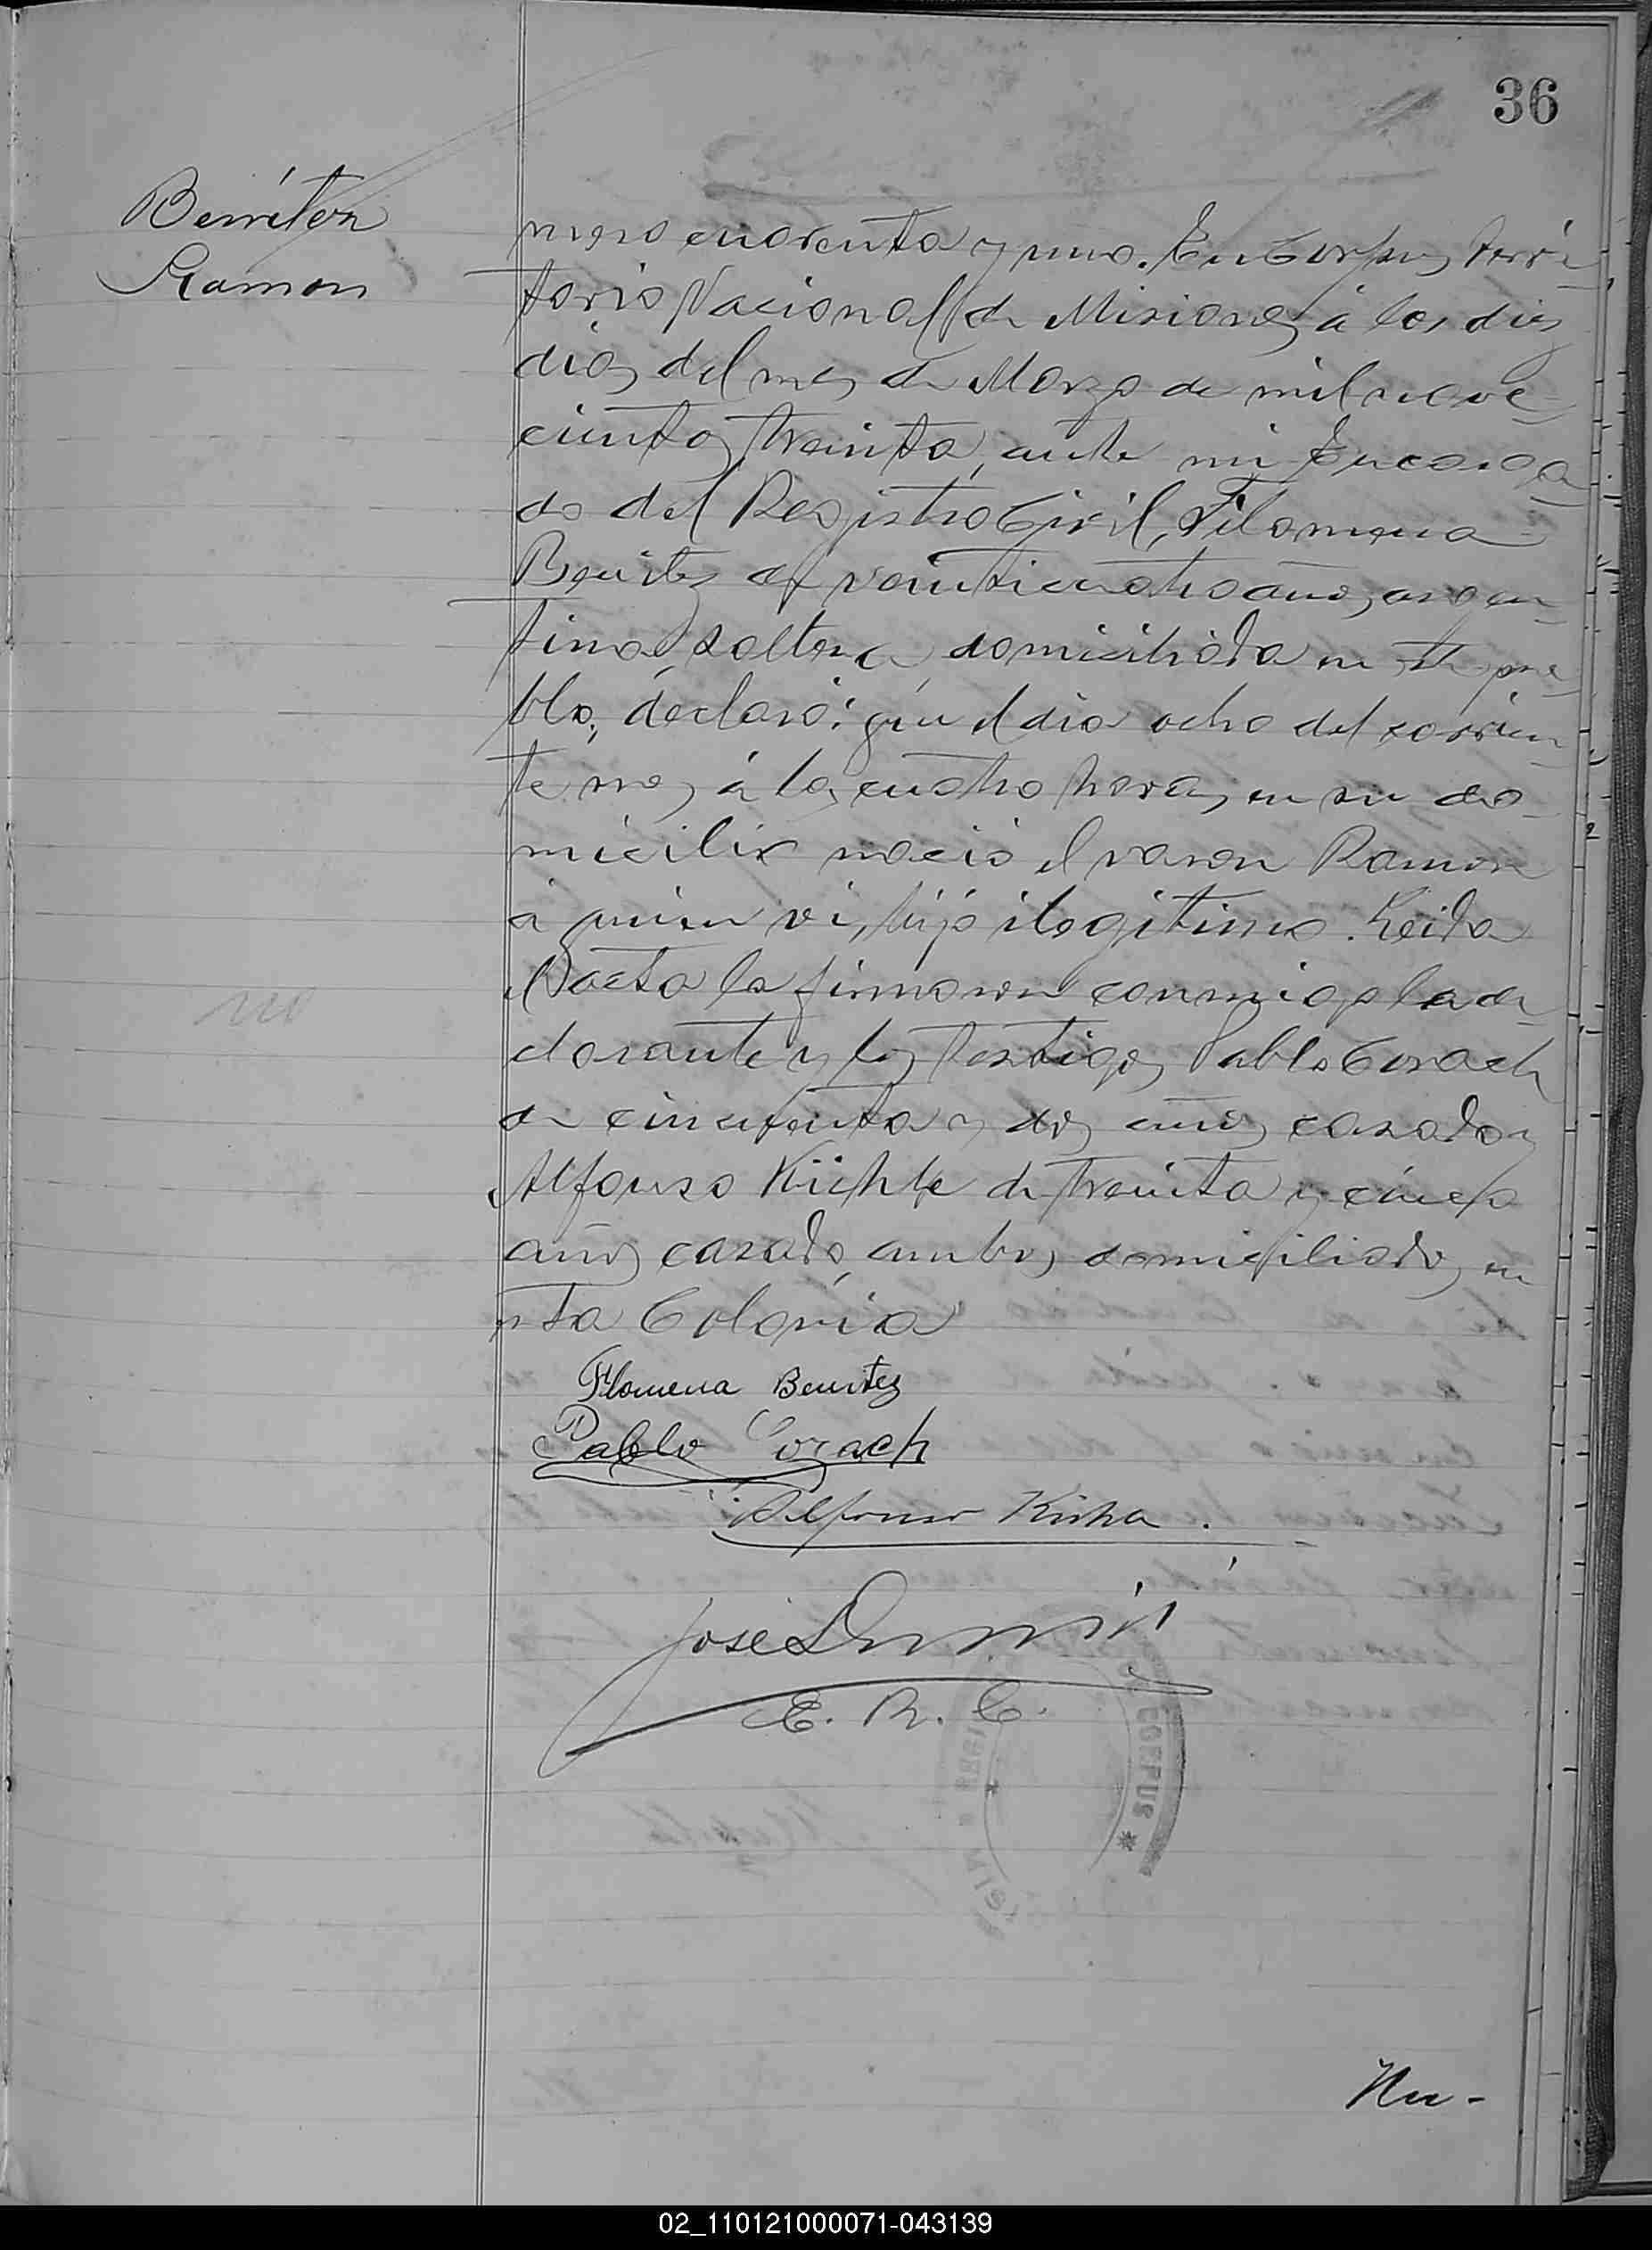 36
Benítez
Ramon
mero cuarenta y uno. En Corpus, Terri-
torio Nacional de Misiones á los diez
dias del mes de Marzo de mil nove-
cientos treinta, ante mi Encarga-
do del Registro Civil, Filomena
Benitez de veinticuatro años, argen-
tina, soltera, domiciliada en este pue-
blo, declaró: que el dia ocho del corrien-
te mes, á las cuatro horas, en su do-
micilio nació el varon Ramon
á quien vi, hijo ilegitimo. Leida
el acta la firmaron conmigo la de-
clarante y los testigos Pablo Corach
de cincuenta y dos años, casado y
Alfonso de treinta y cinco
años casado, ambos domiciliados en
esta Colonia
Filomena Benitez
Pablo Corach
Alfonso
José
E. R. C.
no
CORPUS *
Nu-
02_110121000071-043139